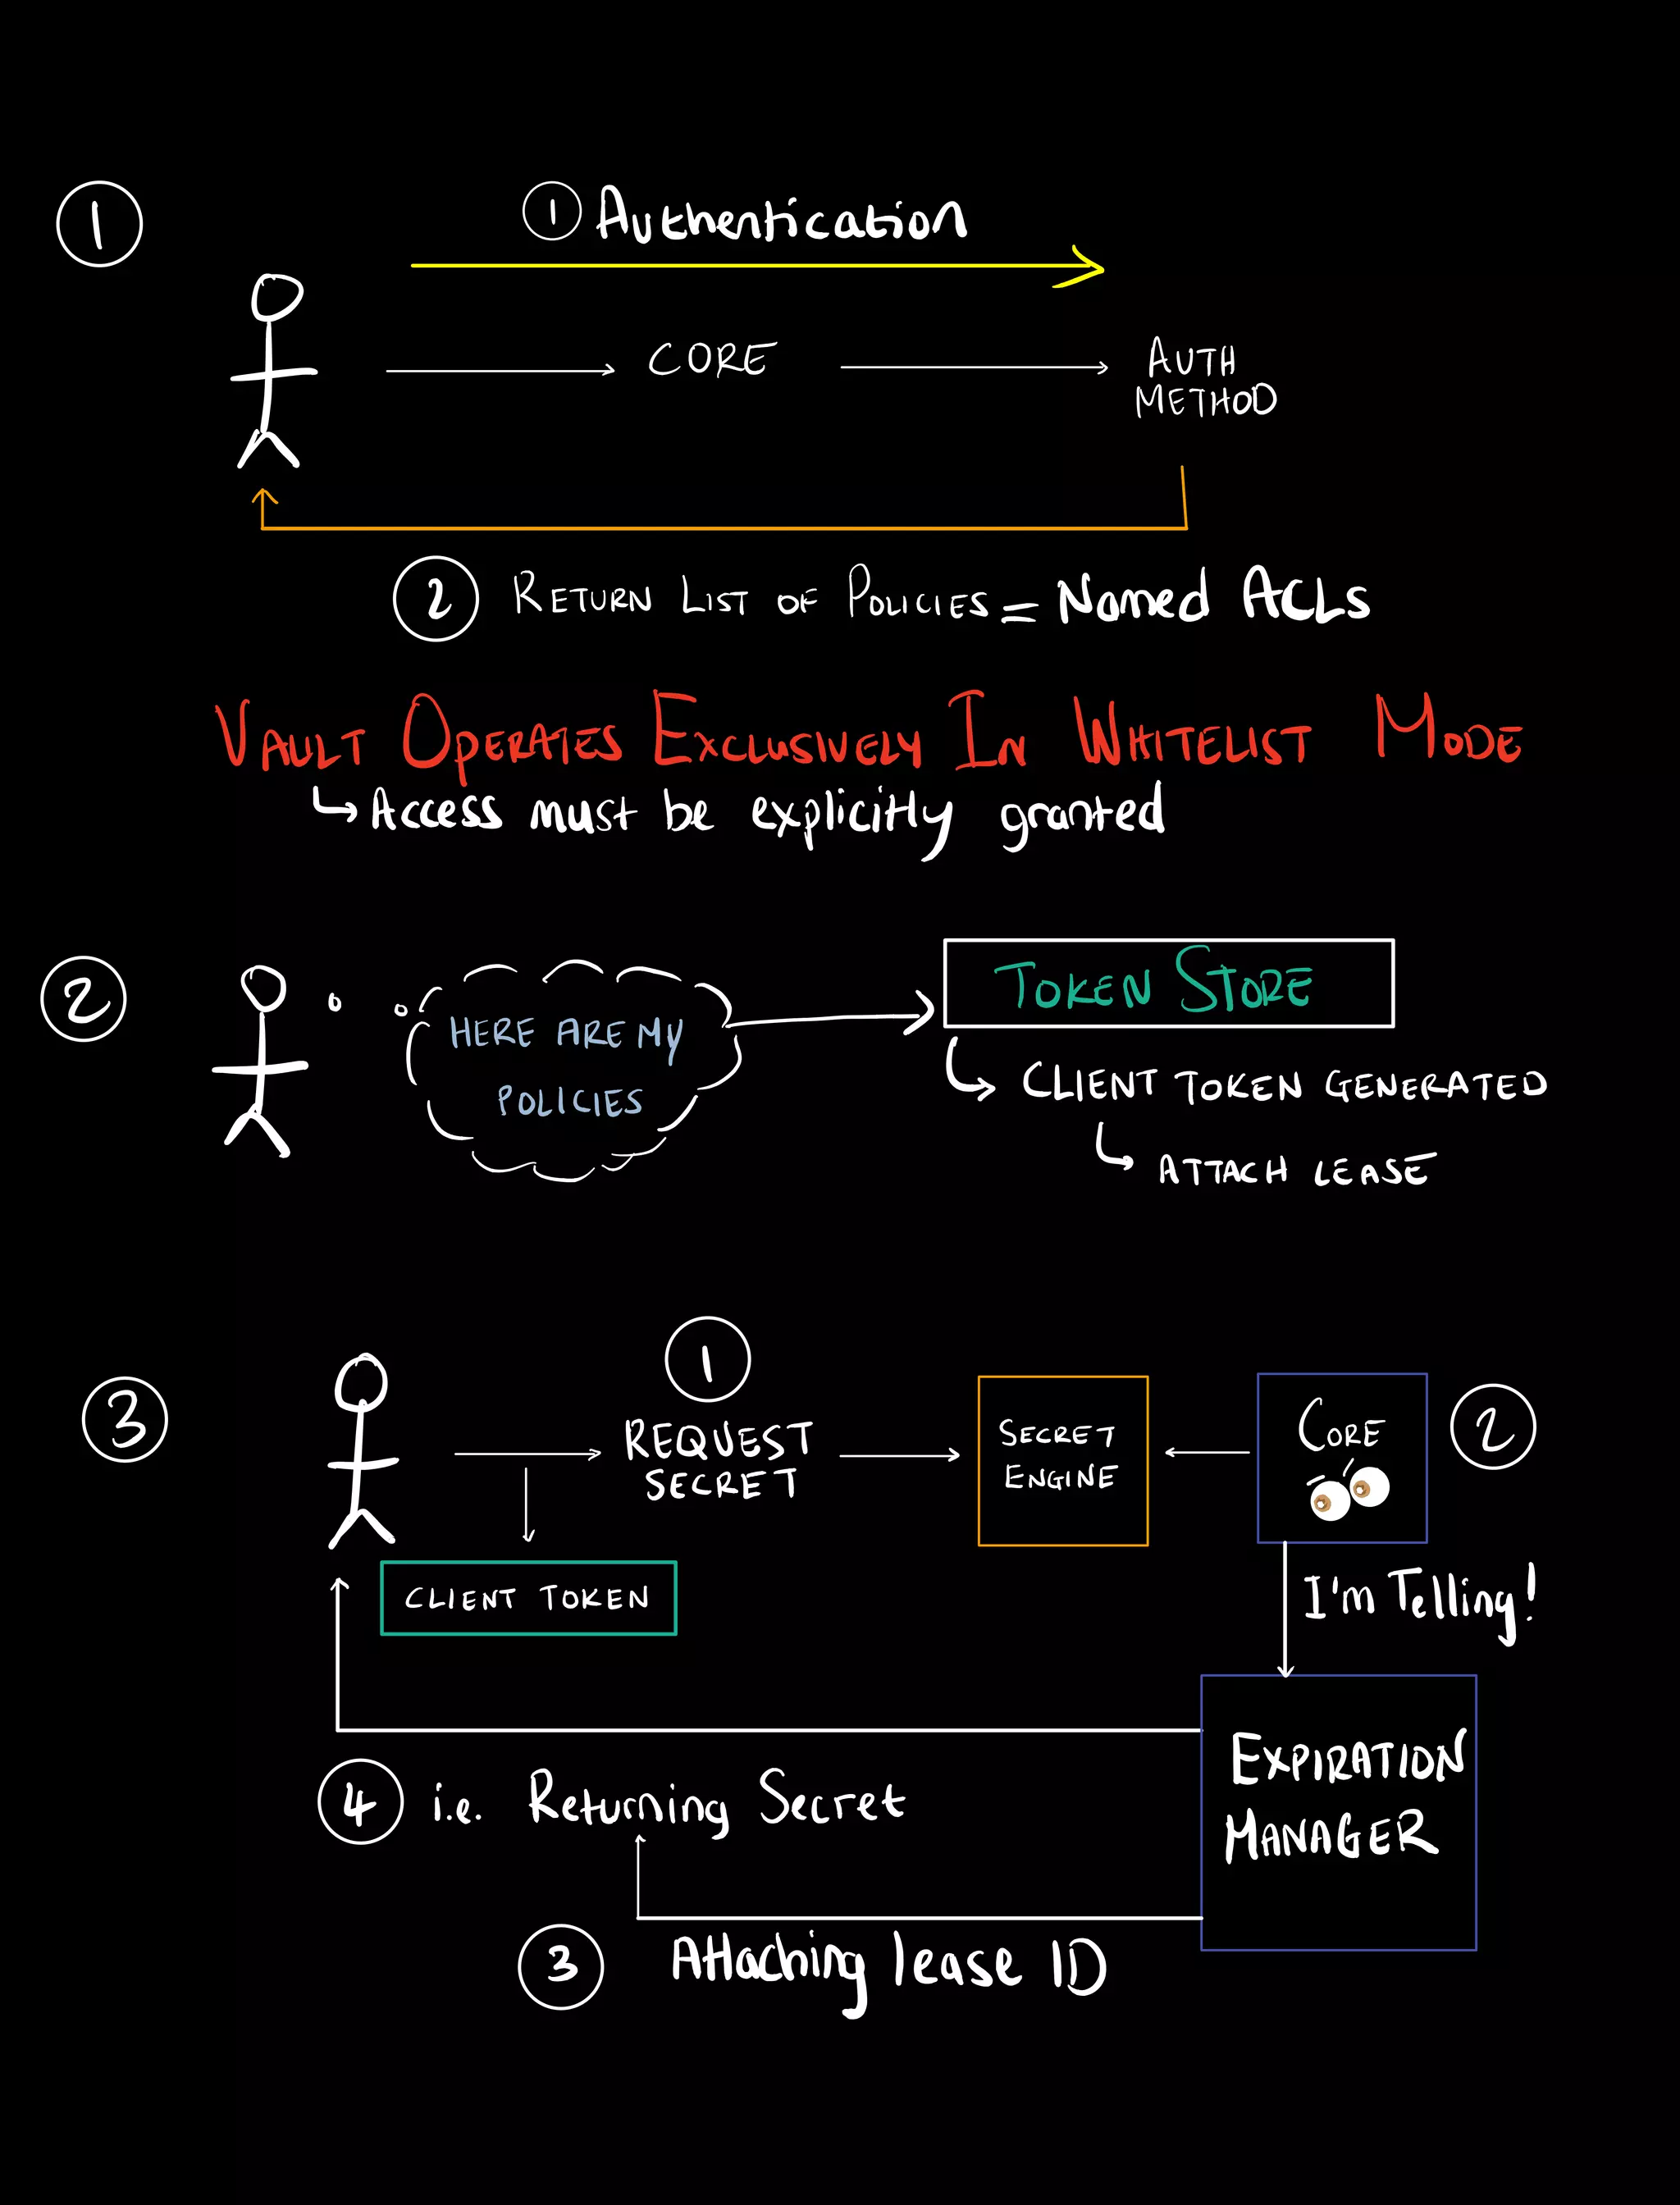 1
1 Authentication
CORE
AUTH
METHOD
2 RETURN LIST OF POLICIES = Named ACLs
VAULT OPERATES EXCLUSIVELY IN WHITELIST MODE
Access must be explicitly granted
2
HERE ARE MY
POLICIES
TOKEN STORE
CLIENT TOKEN GENERATED
ATTACH LEASE
3
1
REQUEST
SECRET
SECRET
ENGINE
CORE
2
CLIENT TOKEN
I'm Telling!
EXPIRATION
MANAGER
4 i.e. Returning Secret
3 Attaching lease ID